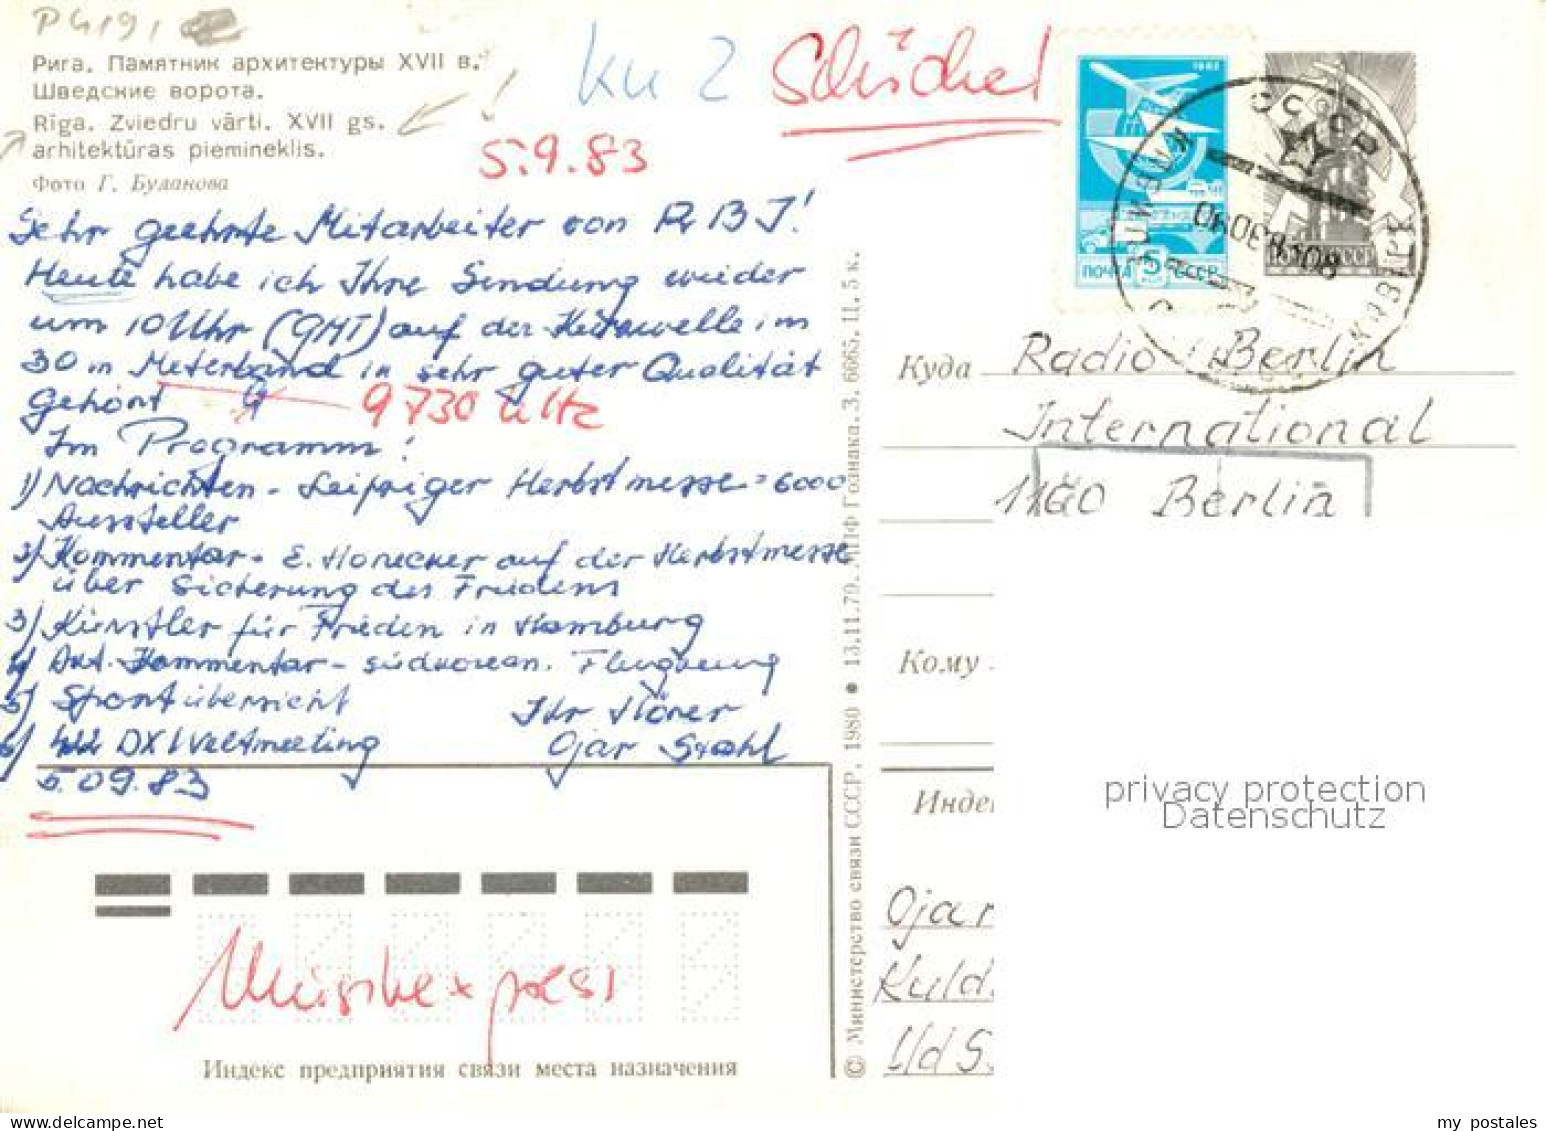 P4191
Рига. Памятник архитектуры XVII в.
Шведские ворота.
Rīga. Zviedru vārti. XVII gs.
arhitektūras piemineklis.
Фото Г. Буланова
Ku 2
5.9.83
Sehr geehrte Mitarbeiter von RBI!
Heute habe ich Ihre Sendung wieder
um 10 Uhr (GMT) auf der Kurzwelle im
30 m Meterband in sehr guter Qualität
gehört
9730 kHz
Im Programm:
1) Nachrichten - Leipziger Herbstmesse = 6000
Aussteller
2) Kommentar - E. Honecker auf der Herbstmesse
über Sicherung des Friedens
3) Künstler für Frieden in Hamburg
4) Akt. Kommentar - südkorean. Flugzeug
5) Sportübersicht
Ihr Hörer
6) DX Weltmeeting
Ojar Stahl
5.09.83
Индекс предприятия связи места назначения
© Министерство связи СССР. 1980 ● 13.11.79. МПФ Гознака. З. 6665. Ц. 5 к.
1982
ПОЧТА 5 СССР
СССР
Куда Radio Berlin
International
1160 Berlin
Кому
Инде
privacy protection
Datenschutz
Ojar
Kuld.
UdS.
my postales